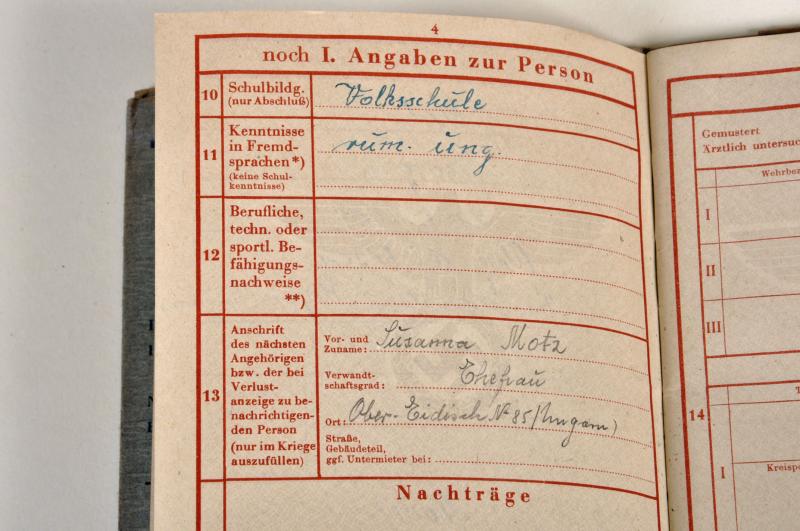 4
noch I. Angaben zur Person
10 Schulbildg.
(nur Abschluß)
Volksschule
11 Kenntnisse
in Fremd-
sprachen*)
(keine Schul-
kenntnisse)
rum. ung.
12 Berufliche,
techn. oder
sportl. Be-
fähigungs-
nachweise
**)
13 Anschrift
des nächsten
Angehörigen
bzw. der bei
Verlust-
anzeige zu be-
nachrichtigen-
den Person
(nur im Kriege
auszufüllen)
Vor- und
Zuname: Susanna Motz
Verwandt-
schaftsgrad: Ehefrau
Ort: Ober-Eidisch № 85 (Ungarn)
Straße,
Gebäudeteil,
ggf. Untermieter bei:
Nachträge
Gemustert
Ärztlich untersuc
Wehrbez
I
II
III
14
T
I
Kreispo